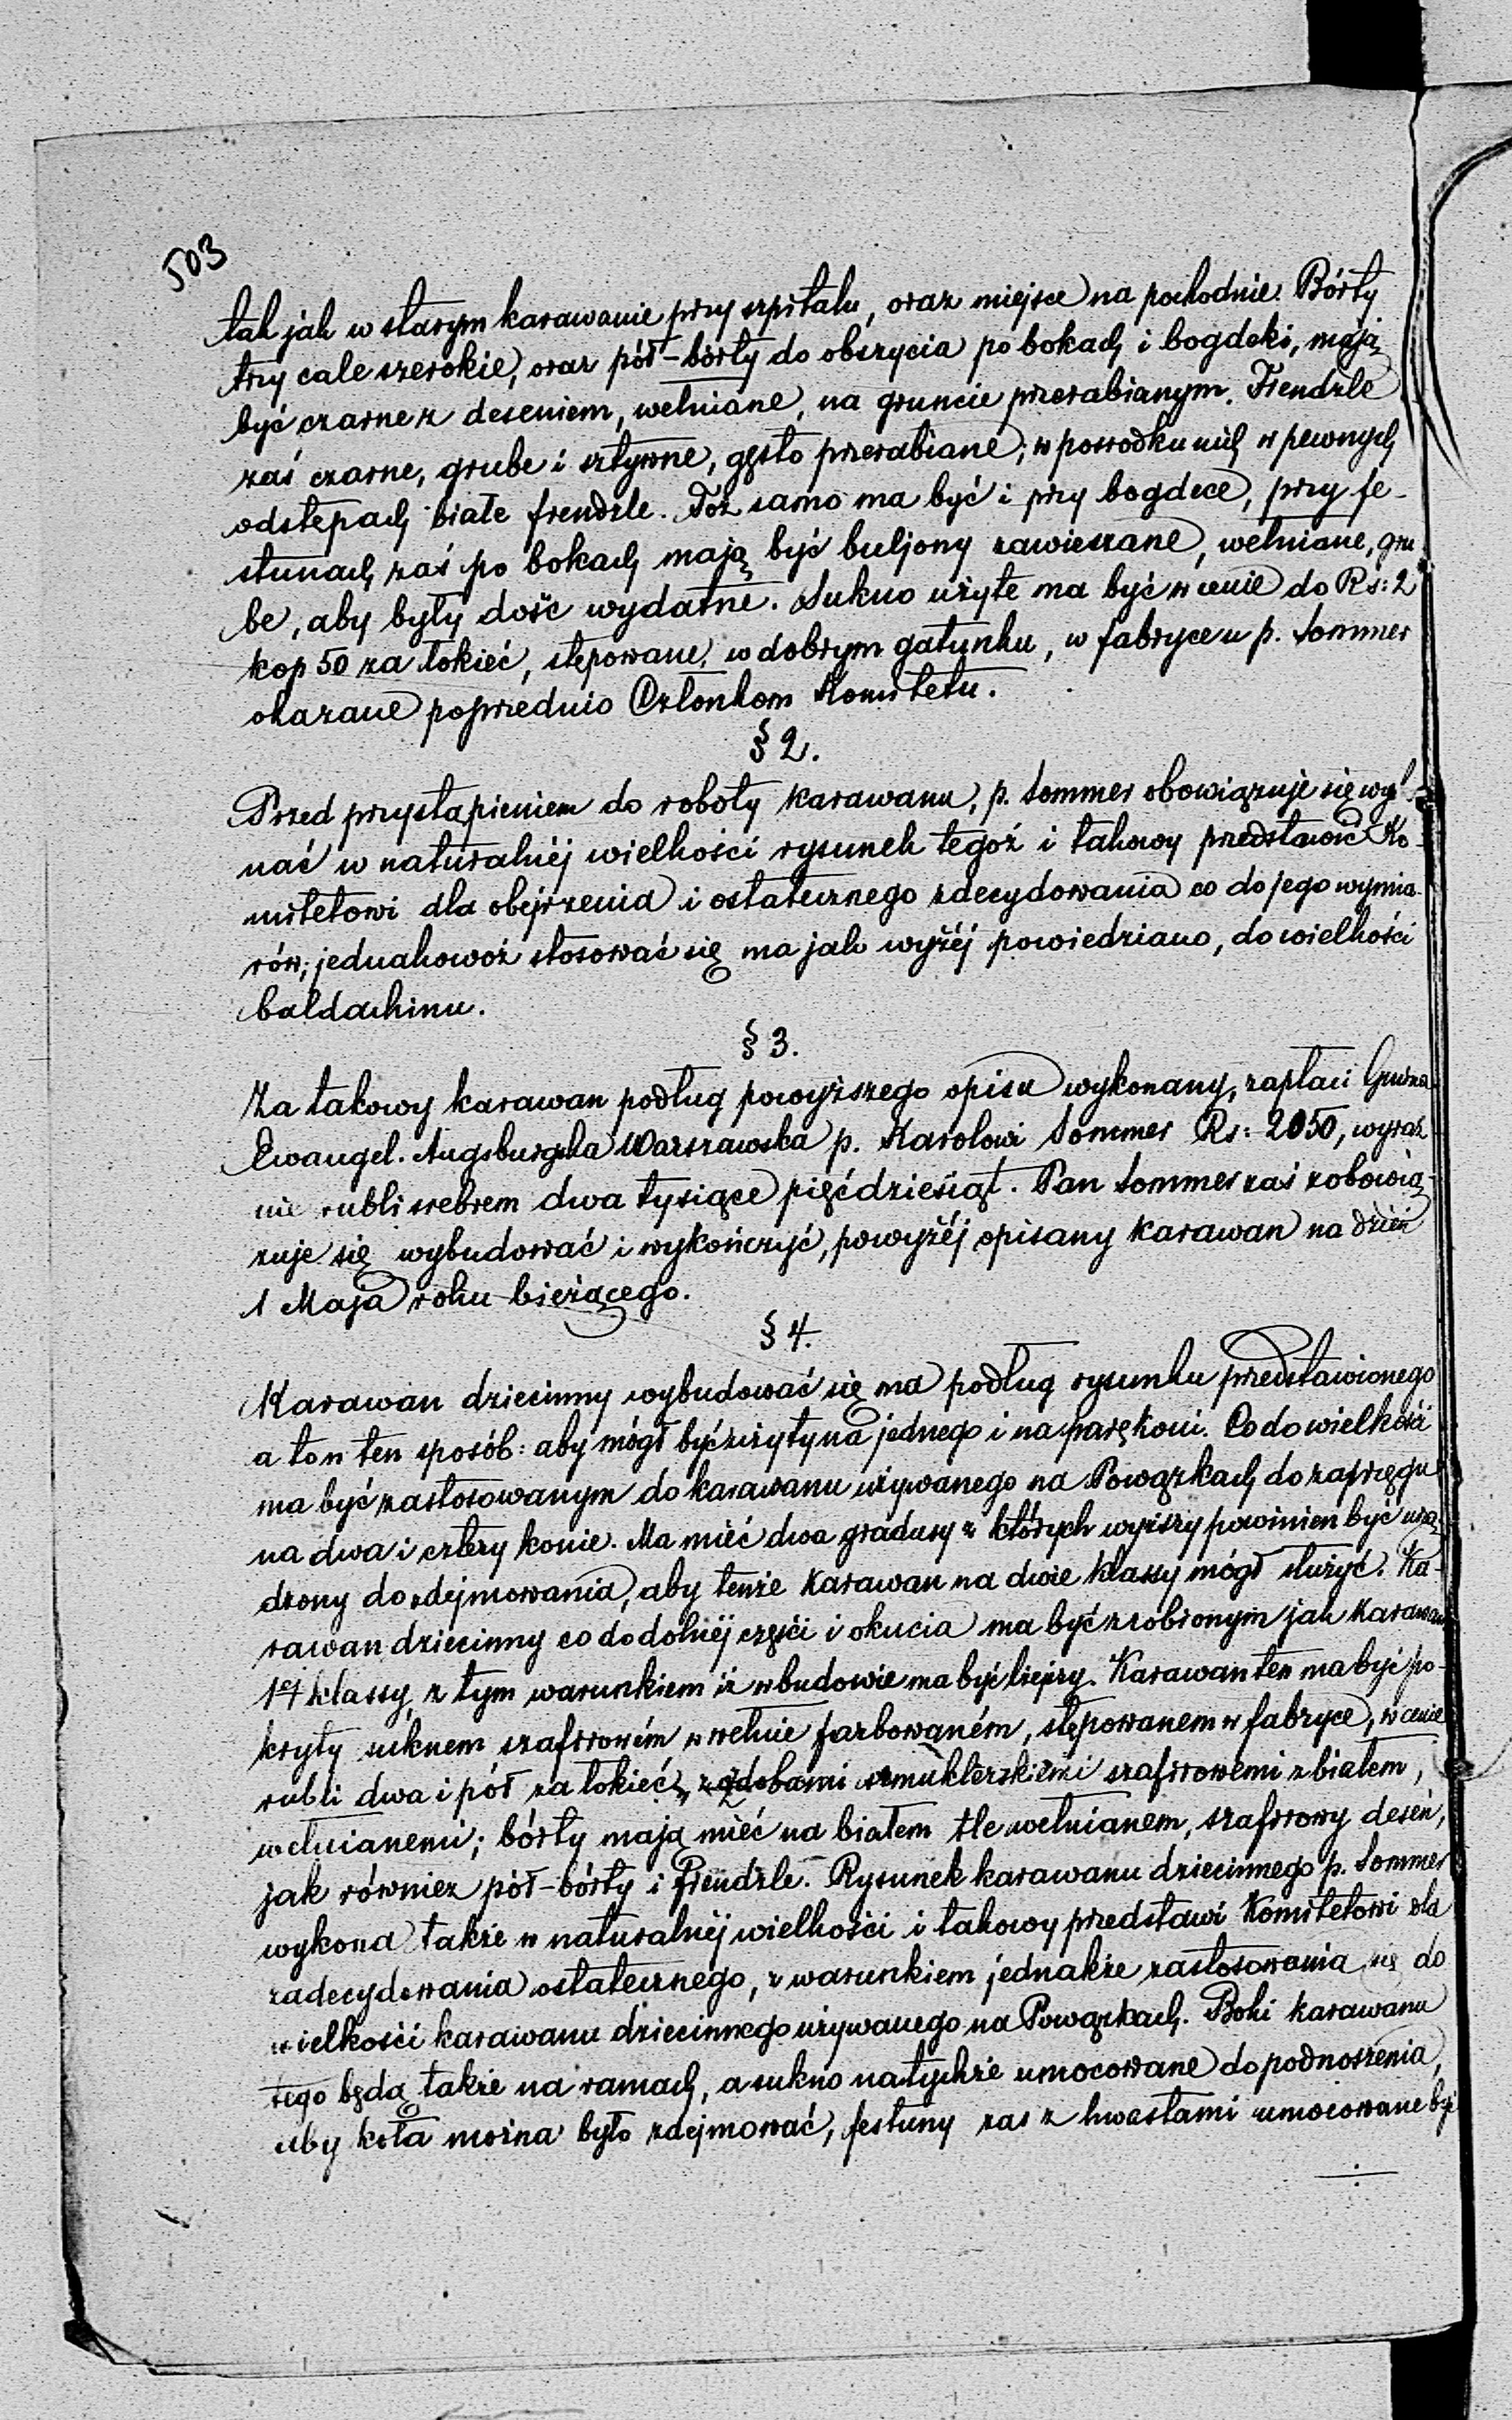 503
tak jak w starym karawanie przy szpitalu, oraz miejsce na pochodnie. Bórty
trzy cale szerokie, oraz pół-bórty do obszycia po bokach i bogdeki, mają
być czarne z deseniem, wełniane, na gruncie przerabianym. Frendzle
zaś czarne, grube i sztywne, gęsto przerabiane; w pośrodku nich w pewnych
odstępach białe frendzle. Toż samo ma być i przy bogdece, przy fe-
stunach zaś po bokach mają być buljony zawieszane, wełniane, gru
be, aby były dość wydatne. Sukno użyte ma być w cenie do Rs: 2
kop 50 za łokieć, stępowane, w dobrym gatunku, w fabryce u p. Sommer
okazane poprzednio Członkom Komitetu.
§ 2.
Przed przystąpieniem do roboty karawanu, p. Sommer obowiązuje się wyko
nać w naturalnéj wielkości rysunek tegoż i takowy przedstawić Ko-
mitetowi dla obejrzenia i ostatecznego zdecydowania co do jego wymia-
rów; jednakowoż stosować się ma jak wyżéj powiedziano, do wielkości
baldachinu.
§ 3.
Za takowy karawan podług powyższego opisu wykonany, zapłaci Gmina
Ewangel. Augsburgska Warszawska p. Karolowi Sommer Rs: 2050, wyraź
nie rubli srebrem dwa tysiące pięćdziesiąt. Pan Sommer zaś zobowią-
zuje się wybudować i wykończyć, powyżéj opisany karawan na dzień
1 Maja roku bieżącego.
§ 4.
Karawan dziecinny wybudować się ma podług rysunku przedstawionego
a to w ten sposób: aby mógł być użyty na jednego i na parę koni. Co do wielkości
ma być zastosowanym do karawanu używanego na Powązkach do zaprzęgu
na dwa i cztery konie. Ma mieć dwa gradusy z których wyższy powinien być urzą-
dzony do zdejmowania, aby tenże karawan na dwie klassy mógł służyć. Ka-
rawan dziecinny co do dolnéj części i okucia ma być zrobionym jak karawan
1éj klassy, z tym warunkiem iż w budowie ma być lżejszy. Karawan ten ma być po-
kryty suknem szafirowém w wełnie farbowaném, stępowanem w fabryce, w cenie
rubli dwa i pół za łokieć, z ozdobami szmuklerskiemi szafirowemi z białem,
wełnianemi; bórty mają mieć na białem tle wełnianem, szafirowy deseń,
jak również pół-bórty i frendzle. Rysunek karawanu dziecinnego p. Sommer
wykona także w naturalnéj wielkości i takowy przedstawi Komitetowi dla
zadecydowania ostatecznego, z warunkiem jednakże zastosowania się do
wielkości karawanu dziecinnego używanego na Powązkach. Boki karawanu
tego będą także na ramach, a sukno na tychże umocowane do podnoszenia,
aby koła można było zdejmować, festuny zaś z kwastami umocowane być